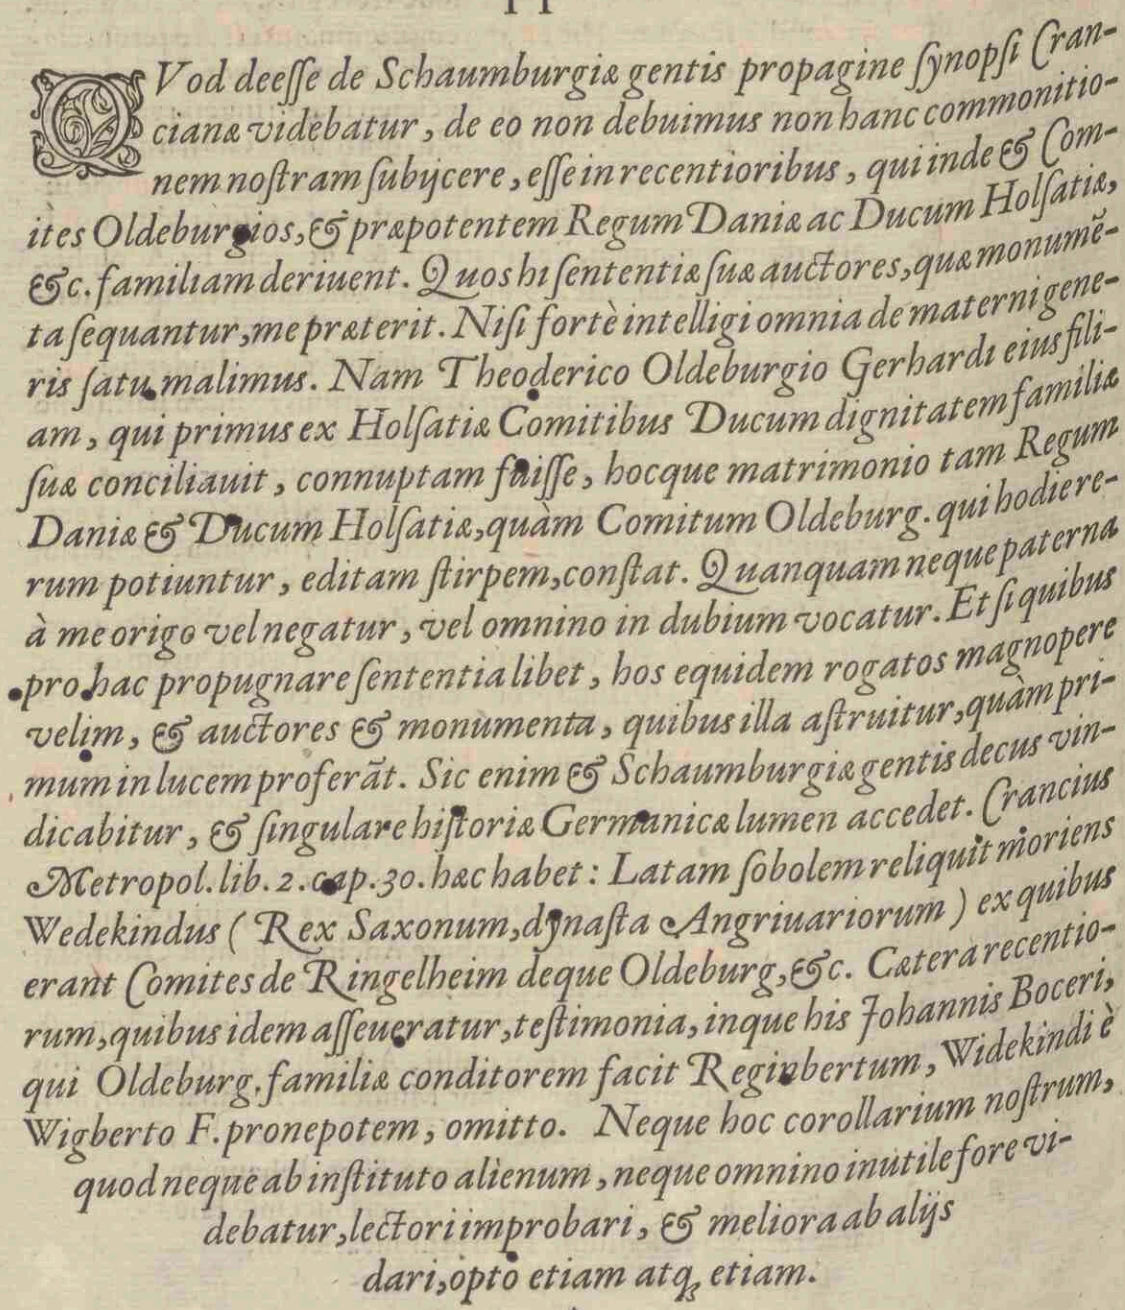 QVod deesse de Schaumburgiæ gentis propagine synopsi Cran-
cianæ videbatur, de eo non debuimus non hanc commonitio-
nem nostram subijcere, esse in recentioribus, qui inde & Com-
ites Oldeburgios, & præpotentem Regum Daniæ ac Ducum Holsatiæ,
&c. familiam deriuent. Quos hi sententiæ suæ auctores, quæ monumē-
ta sequantur, me præterit. Nisi fortè intelligi omnia de materni gene-
ris satu malimus. Nam Theoderico Oldeburgio Gerhardi eius fili-
am, qui primus ex Holsatiæ Comitibus Ducum dignitatem familiæ
suæ conciliauit, connuptam fuisse, hocque matrimonio tam Regum
Daniæ & Ducum Holsatiæ, quàm Comitum Oldeburg. qui hodie re-
rum potiuntur, editam stirpem, constat. Quanquam neque paterna
à me origo vel negatur, vel omnino in dubium vocatur. Et si quibus
pro hac propugnare sententia libet, hos equidem rogatos magnopere
velim, & auctores & monumenta, quibus illa astruitur, quàm pri-
mum in lucem proferāt. Sic enim & Schaumburgiæ gentis decus vin-
dicabitur, & singulare historiæ Germanicæ lumen accedet. Crancius
Metropol. lib. 2. cap. 30. hæc habet: Latam sobolem reliquit moriens
Wedekindus (Rex Saxonum, dynasta Angriuariorum) ex quibus
erant Comites de Ringelheim deque Oldeburg, &c. Cætera recentio-
rum, quibus idem asseueratur, testimonia, inque his Johannis Boceri,
qui Oldeburg. familiæ conditorem facit Reginbertum, Widekindi è
Wigberto F. pronepotem, omitto. Neque hoc corollarium nostrum,
quod neque ab instituto alienum, neque omnino inutile fore vi-
debatur, lectori improbari, & meliora ab alijs
dari, opto etiam atq; etiam.